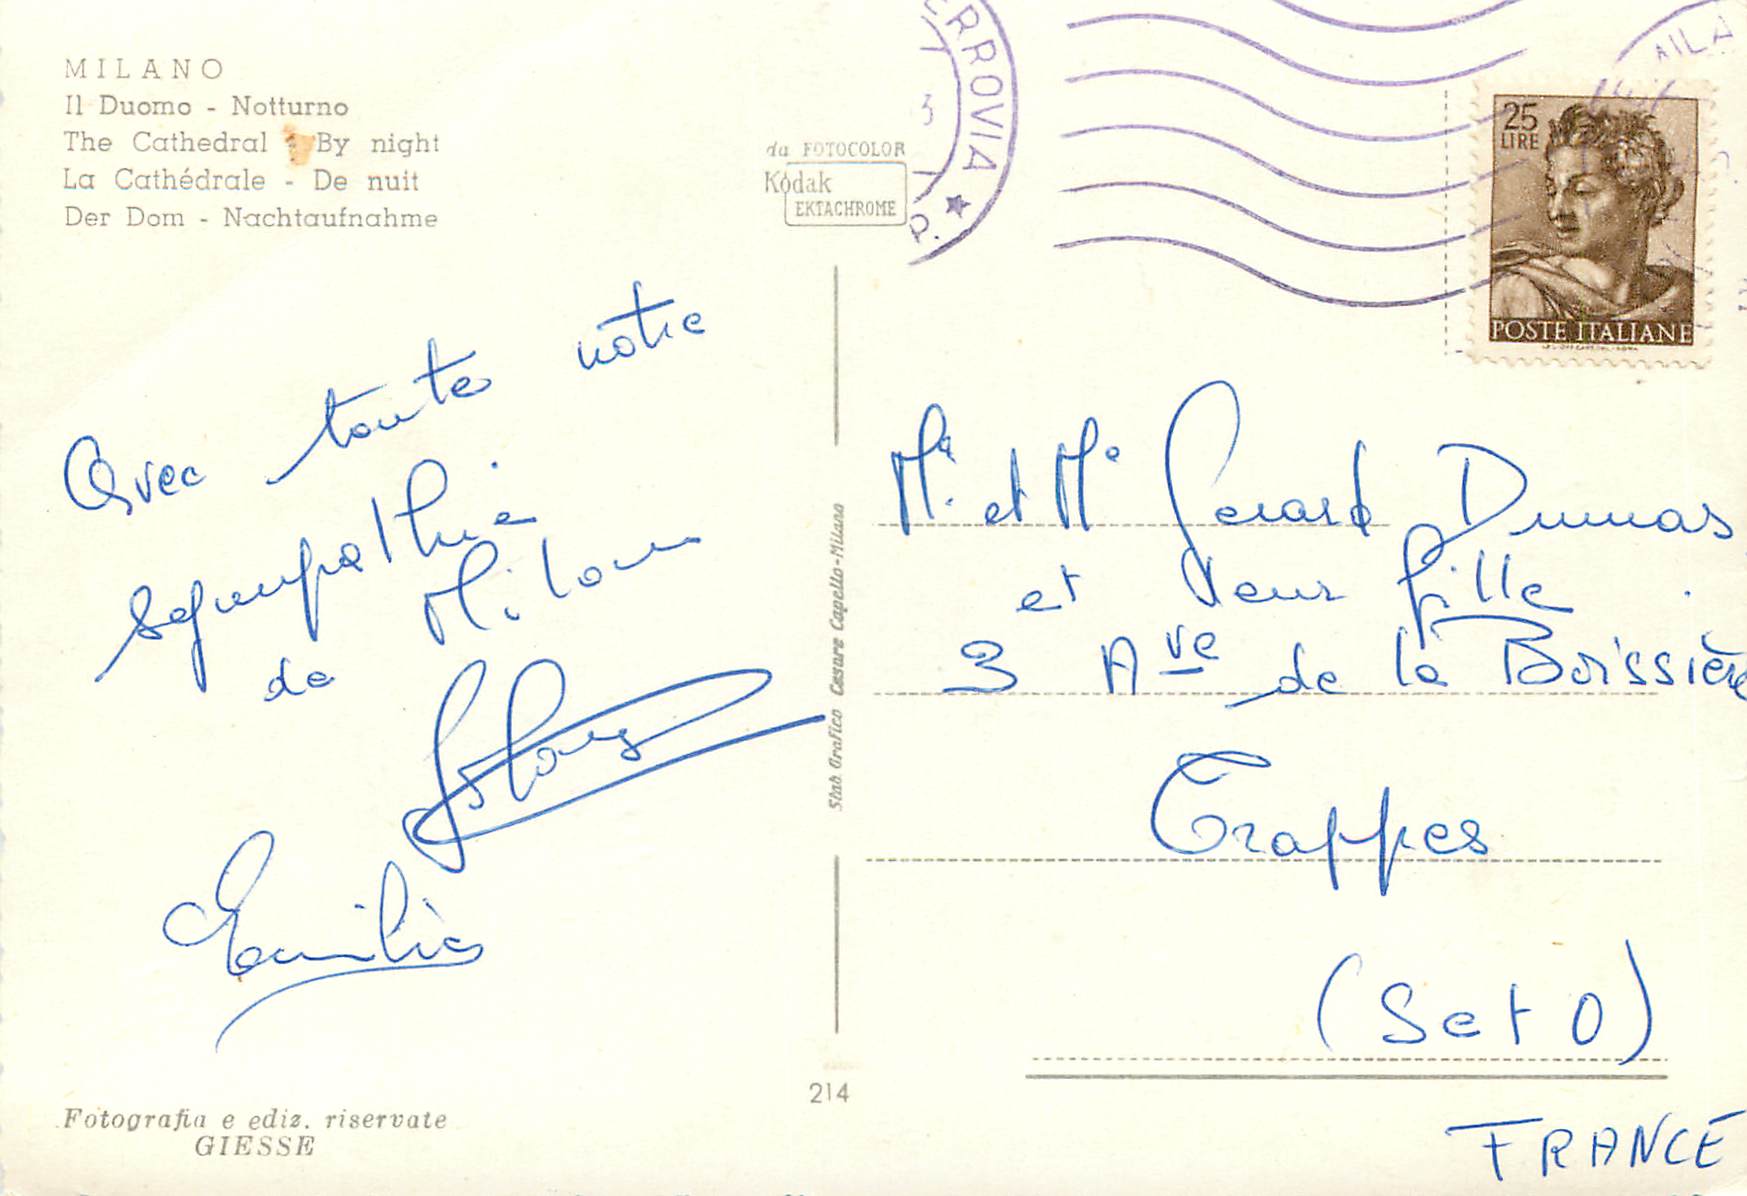 MILANO
Il Duomo - Notturno
The Cathedral - By night
La Cathédrale - De nuit
Der Dom - Nachtaufnahme
da FOTOCOLOR
Kodak
EKTACHROME
ERROVIA
P.
MILA
25
LIRE
POSTE ITALIANE
Avec toute notre
sympathie
de Milano
Emilia
Stab. Grafico Cesare Capello-Milano
Mr. et Me Gerard Dumas
et leur fille
3 Ave de la Boissière
Trappes
(S et O)
FRANCE
214
Fotografia e ediz. riservate
GIESSE